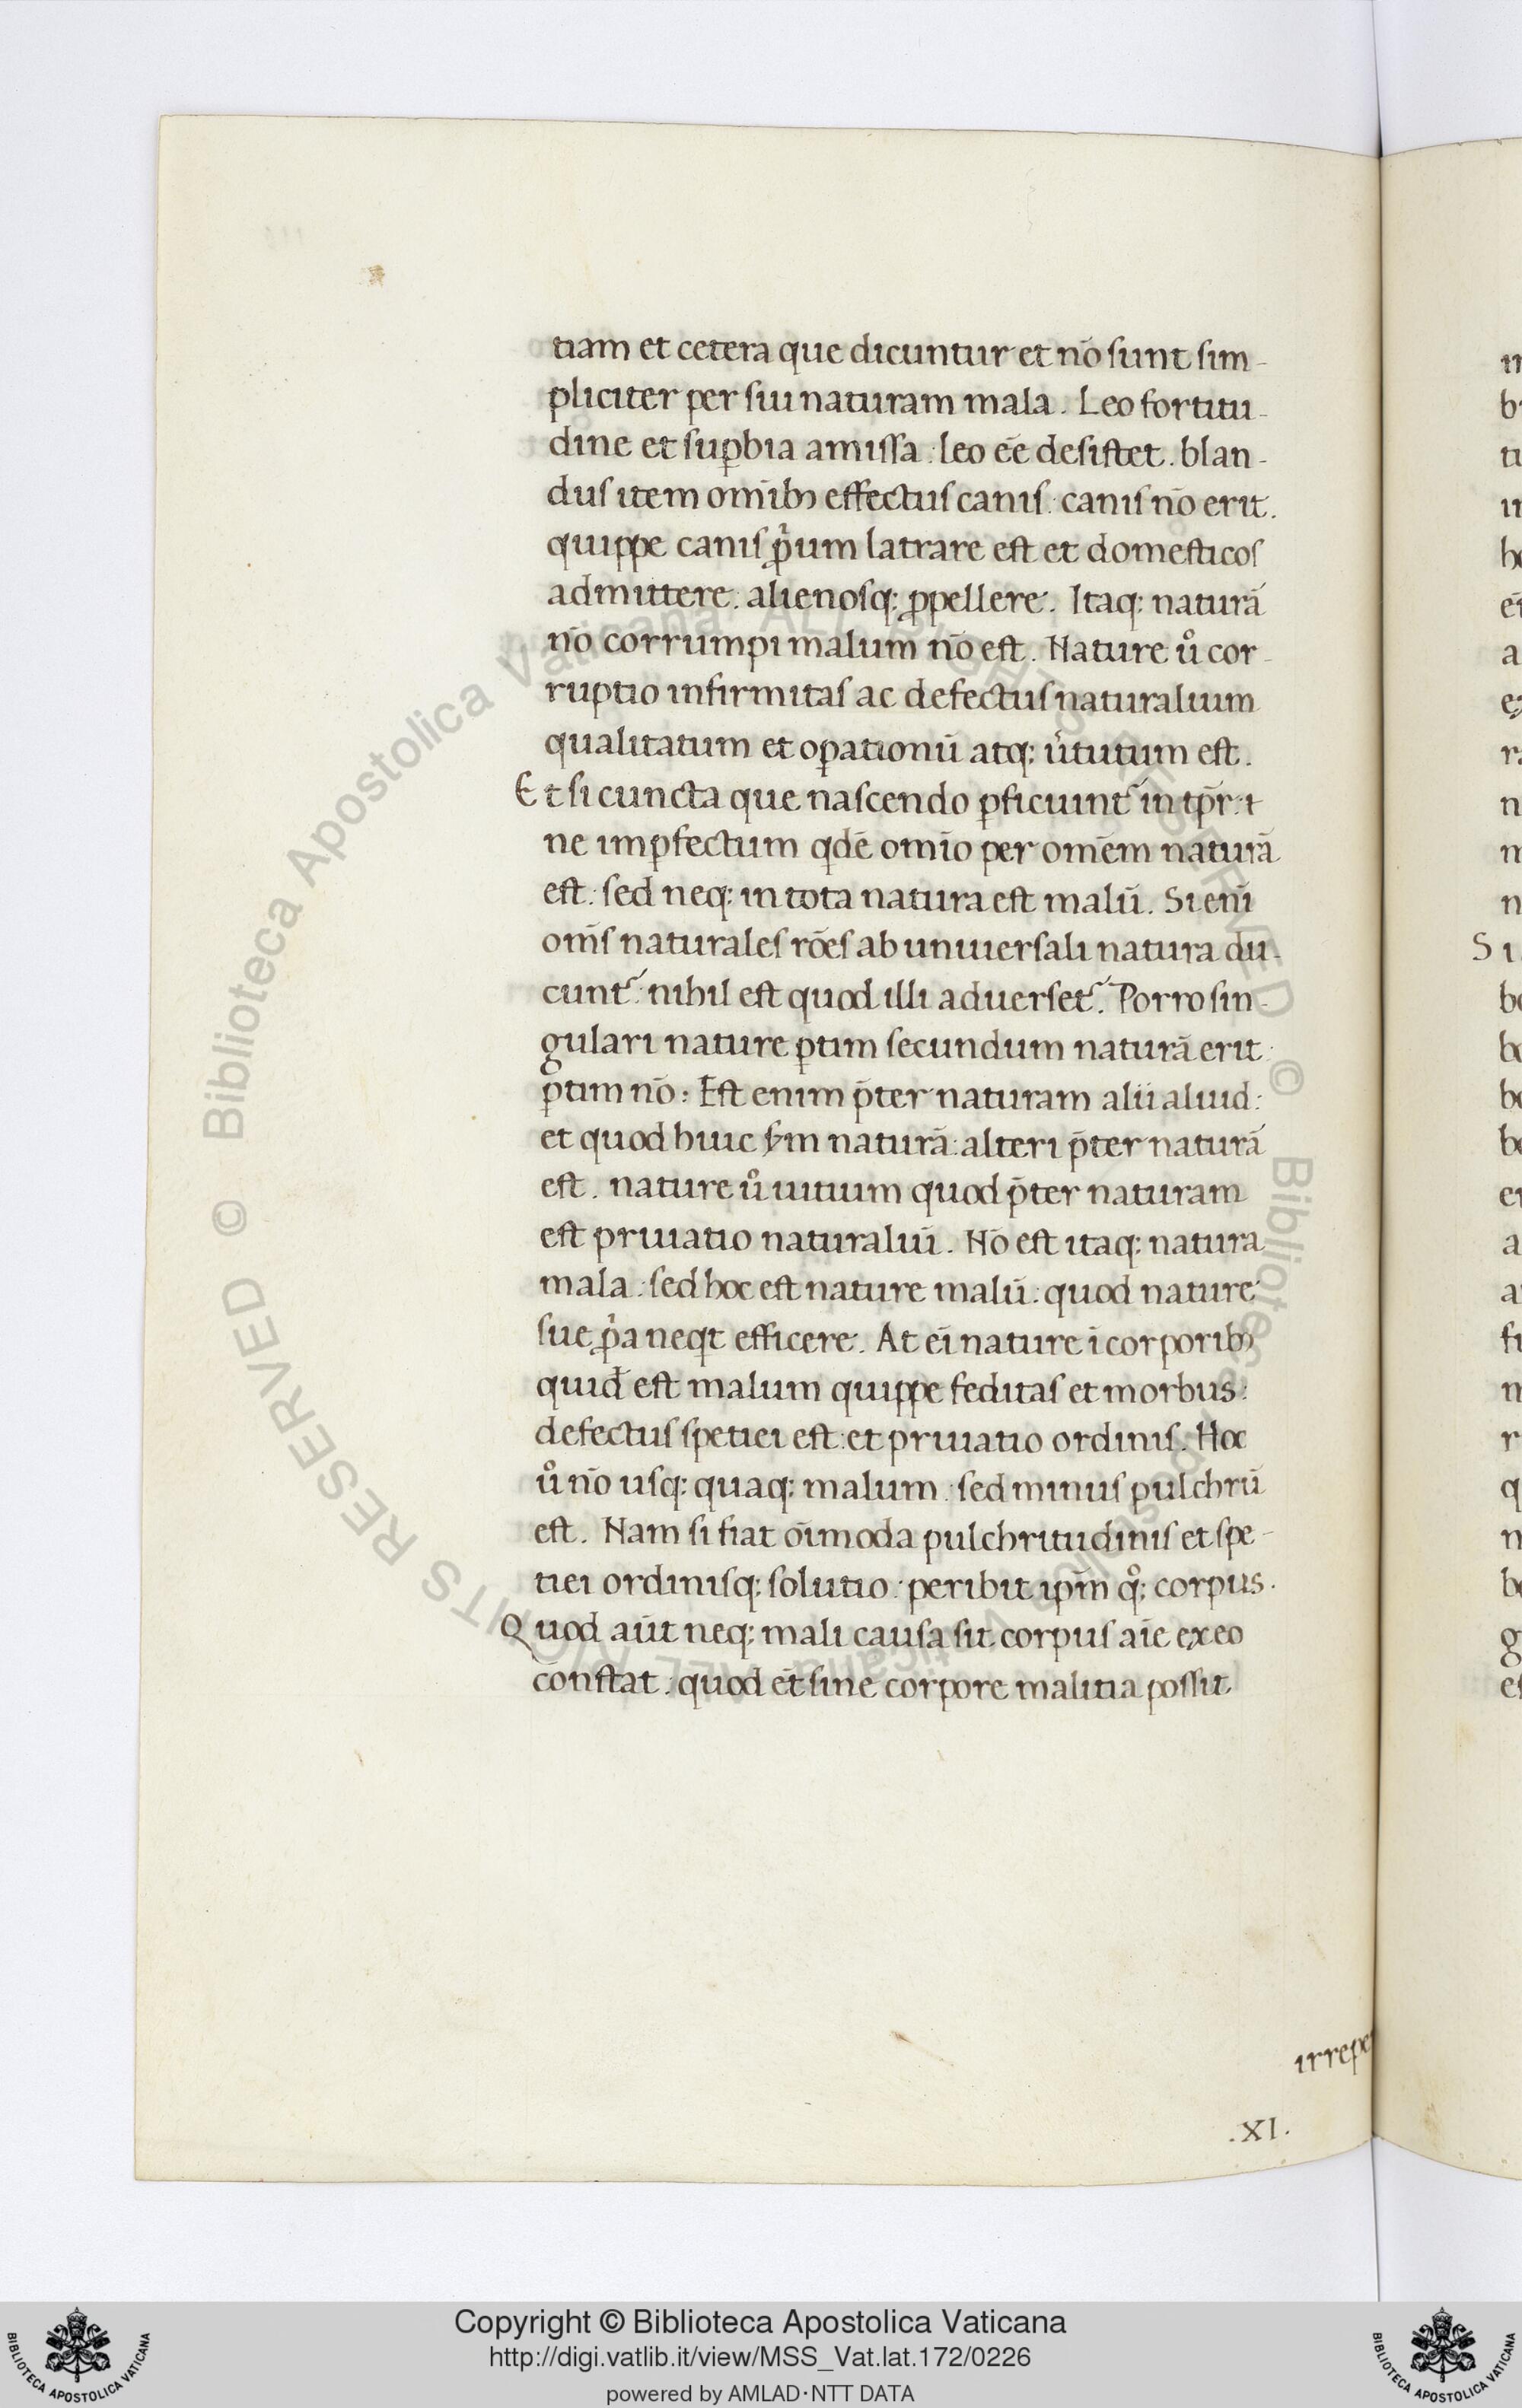 tiam et cetera que dicuntur et nō sunt sim-
pliciter per sui naturam mala. Leo fortitu-
dine et suꝑbia amissa: leo eē desistet. blan-
dus item omībꝫ effectus canis: canis nō erit.
quippe canis ꝓͥum latrare est et domesticos
admittere: alienosqꝫ ꝓpellere. Itaqꝫ naturā
nō corrumpi malum nō est. Nature ů cor-
ruptio infirmitas ac defectus naturalium
qualitatum et oꝑationū atqꝫ uͥtutum est.
Et si cuncta que nascendo ꝑficiunt᷑ in tp̄r:t
ne imꝑfectum qdē omīo per omēm naturā
est: sed neqꝫ in tota natura est malū. Si enī
om̄s naturales rōes ab uniuersali natura du-
cunt᷑: nihil est quod illi aduerset᷑. Porro sin-
gulari nature ꝑtim secundum naturā erit:
ꝑtim nō: Est enim p̄ter naturam alii aliud:
et quod huic s̄m naturā: alteri p̄ter naturā
est. nature ů uitium quod p̄ter naturam
est priuatio naturaliū. Nō est itaqꝫ natura
mala: sed hoc est nature malū: quod nature
sue ꝓͥa neqt efficere. At eī nature ī corporibꝫ
quid̄ est malum quippe feditas et morbus:
defectus spetiei est: et priuatio ordinis. Hoc
ů nō usqꝫ quaqꝫ malum: sed minus pulchrū
est. Nam si fiat oīmoda pulchritudinis et spe-
tiei ordinisqꝫ solutio: peribit ip̄m q̊ꝫ corpus.
Quod aūt neqꝫ mali causa sit corpus aīe ex eo
constat: quod et̄ sine corpore malitia possit
irrepe
.XI.
Copyright © Biblioteca Apostolica Vaticana
http://digi.vatlib.it/view/MSS_Vat.lat.172/0226
powered by AMLAD·NTT DATA